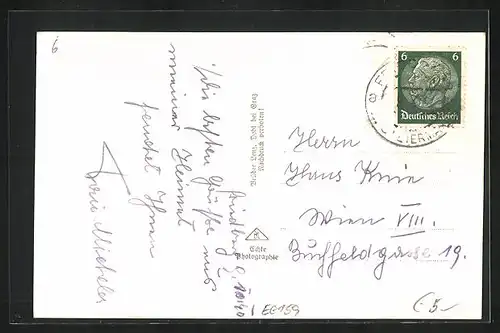 6
Friedberg, 9.
Die besten Grüße aus
meiner Heimat
sendet Ihnen
Brüder Lenz, Dobl bei Graz
Nachdruck verboten!
Echte
Photographie
6 6
Deutsches Reich
Herrn
Hans Knie
Wien VIII.
Buchfeldgasse 19.
EC159
(5